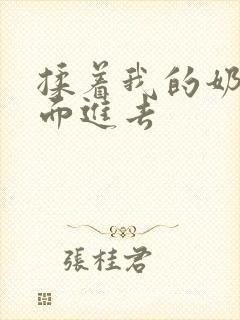 揉着我的奶
而進去
張桂君